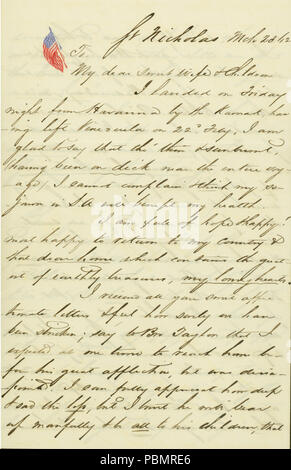 St Nicholas Mch 23/62
To
My dear sweet Wife & Children
I landed on Friday
night from Havanna by the Karnak, hav-
ing left Venezuela on 22d Feby, I am
glad to say that tho' thin & sunburnt,
having been on deck near the entire voy-
age, I cannot complain & think my so-
journ in S.A will benefit my health
I am full of hope & happy!
most happy to return to my country &
that dear home which contains the great-
est of earthly treasures, my loving hearts.
I received all your some affec-
tionate letters & feel how sorely you have
been stricken, say to Bro Taylor that I
expected at one time to reach home be-
fore his great affliction but was disap-
pointed. I can fully appreciate how deep
& sad the loss, but I trust he will bear
up manfully & be all to his children, that
alamy
Image ID: PBMRE6
www.alamy.com